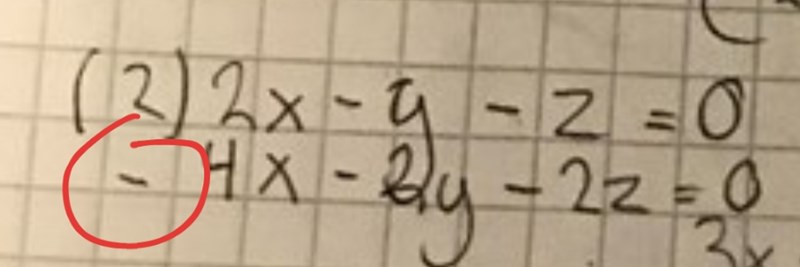 (2) 2x - y - z = 0
- 4x - 2y - 2z = 0
3x